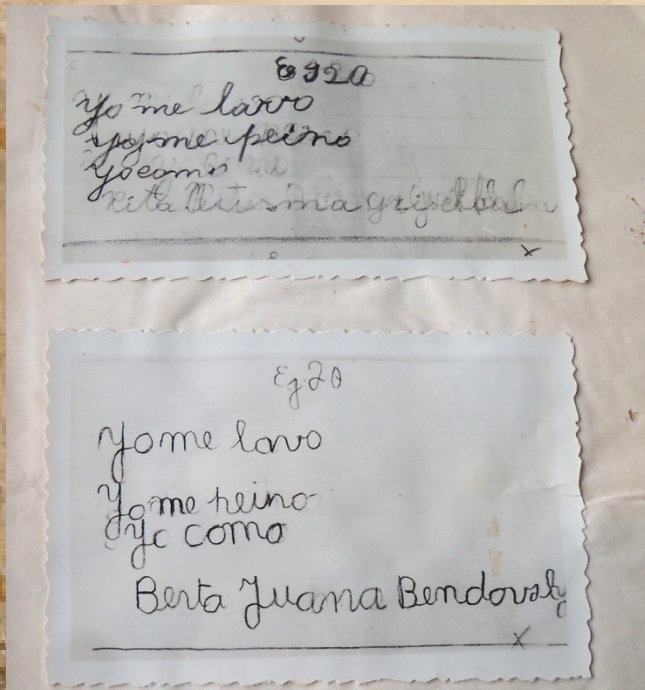 Ej 20
Yo me lavo
Yo me peino
Yo como
Ej 20
Yo me lavo
Yo me peino
Yo como
Berta Juana Bendovsky